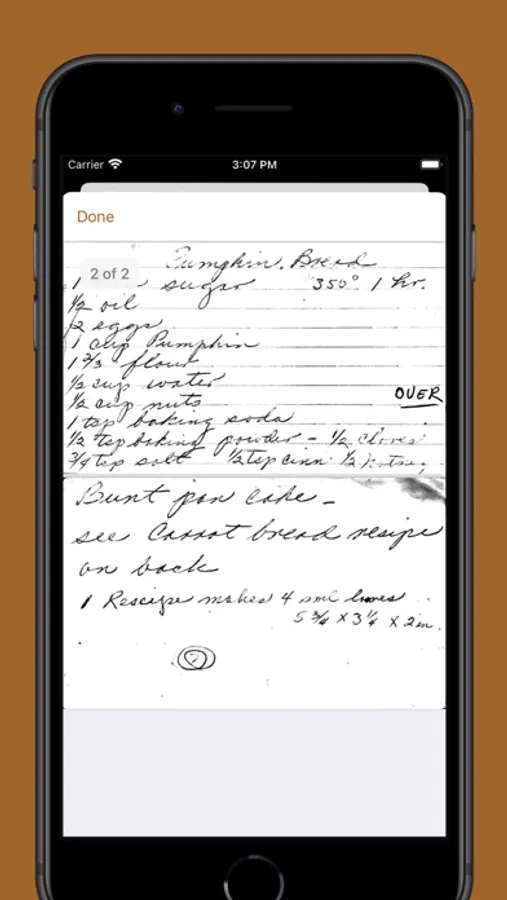 Carrier 3:07 PM
Done
2 of 2
Pumpkin Bread
1 sugar 350° 1 hr.
1/2 oil
2 eggs
1 cup Pumpkin
1 2/3 flour
1/2 cup water
1/2 cup nuts OVER
1 tsp baking soda
1/2 tsp baking powder - 1/2 cloves
3/4 tsp salt 1/2 tsp cinn 1/2 nutmeg
Bunt pan cake -
see Carrot bread resipe
on back
1 Rescipe makes 4 sml loves
5 3/4 x 3 1/4 x 2 in.